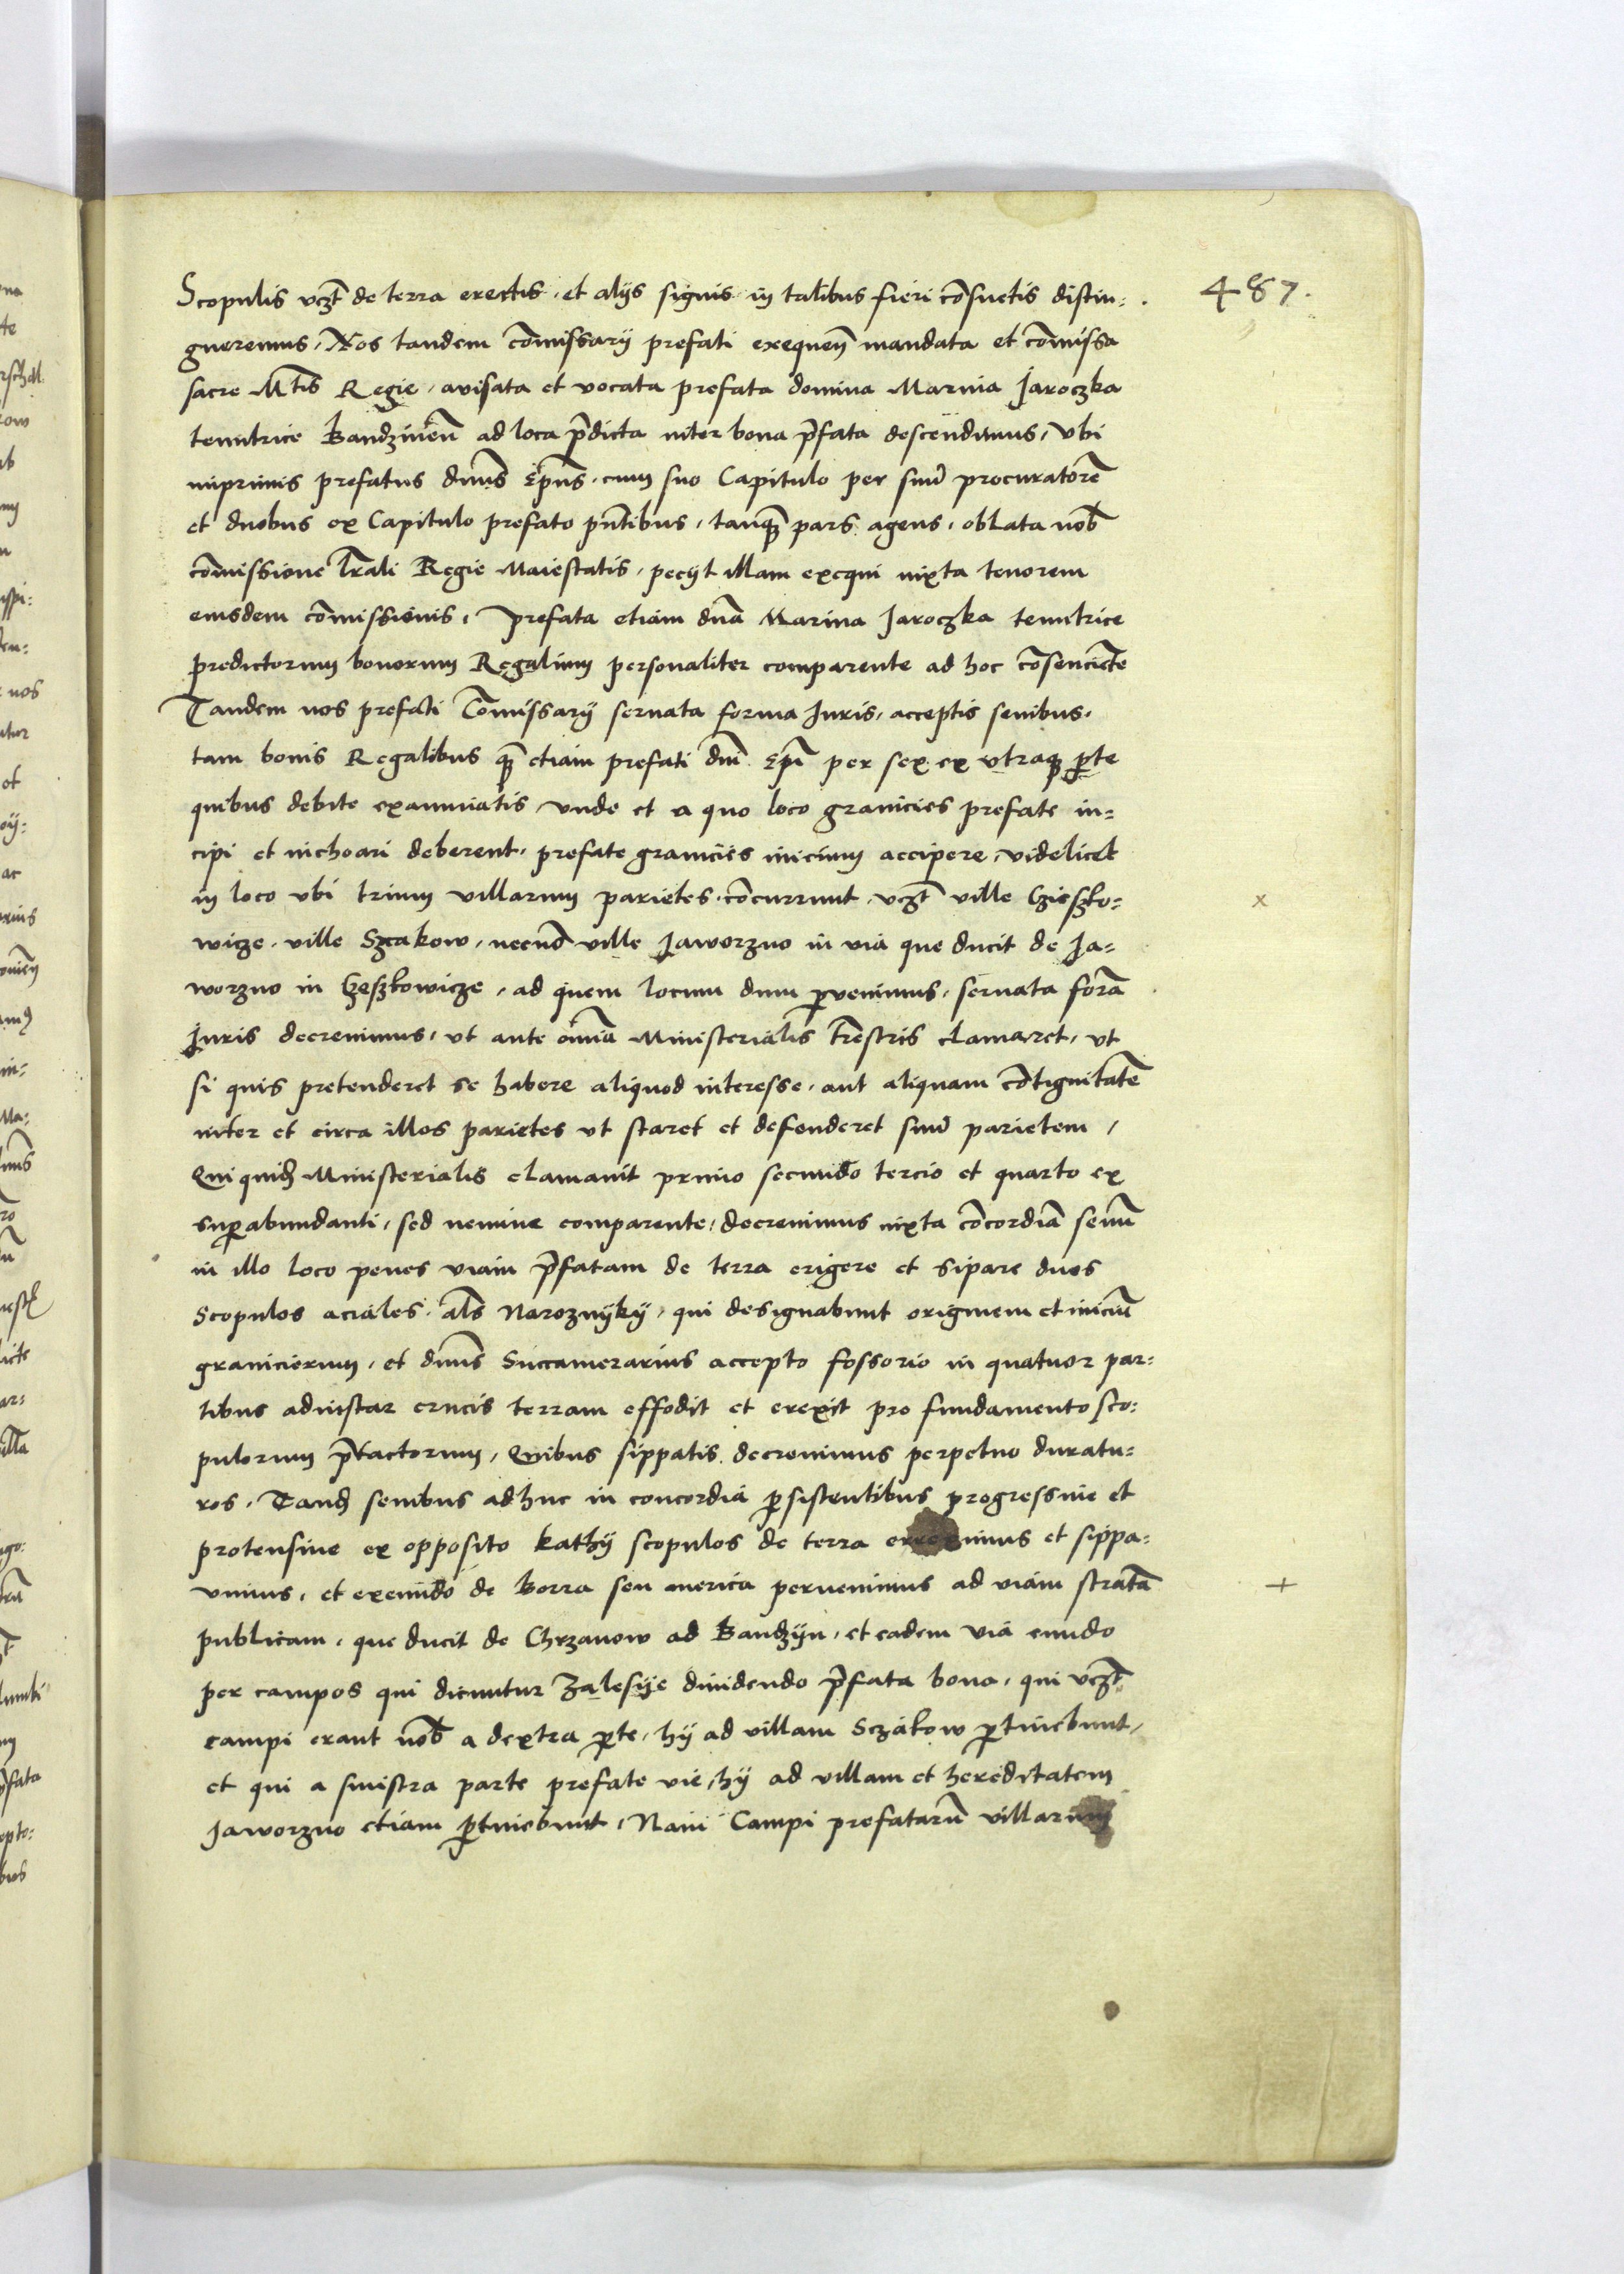 Scopulis vczt de terra erectis, et alijs signis in talibus fieri cõsuetis distin=
487.
gueremus, Nos tandem cõmissarij prefati exequeñ mandata et cõmissa
sacre Mtis Regie, avisata et vocata prefata domina Marina Jaroczka
tenutrice Bandzineñ ad loca p̃dicta inter bona p̃fata descendimus, vbi
inprimis prefatus dñus Ep̃us cum suo Capitulo per suũ procuratorẽ
et duobus ex Capitulo prefato pñtibus, tanq̃ pars agens, oblata nob̃
cõmissione lr̃ali Regie Maiestatis, pecijt illam exequi iuxta tenorem
eiusdem cõmissionis, prefata etiam dña Marina Jaroczka tenutrice
predictorum bonorum Regalium personaliter comparente ad hoc cõsenciẽte
Tandem nos prefati Cõmissarij seruata forma Juris, acceptis senibus,
tam bonis Regalibus q̃ etiam prefati dñi Ep̃i per sex ex vtraq; p̃te
quibus debite examinatis, vnde et a quo loco granicies prefate in=
cipi et inchoari deberent, prefate granicies inicium accipere, videlicet
in loco vbi trium villarum parietes cõcurrunt, vczt ville Czieszko=
wicze, ville Szcakow, necnõ ville Jaworzno in via que ducit de Ja=
worzno in Czeszkowicze, ad quem locum dum p̃uenimus, seruata forã
Juris decreuimus, vt ante om̃ia Ministerialis tr̃estris clamaret, vt
si quis pretenderet se habere aliquod interesse, aut aliquam cõtiguitatẽ
inter et circa illos parietes vt staret et defenderet suũ parietem,
Qui quid̃ Ministerialis clamauit primo secundo tercio et quarto ex
sup̃abundanti, sed nemine comparente, decreuimus iuxta cõcordiã senũ
in illo loco penes viam p̃fatam de terra erigere et sipare duos
Scopulos aciales, als Naroznijkij, qui designabunt originem et iniciũ
granicierum, et dñus Succamerarius accepto fossorio in quatuor par=
tibus adinstar crucis terram effodit et erexit pro fundamento sco=
pulorum p̃factorum, Quibus sippatis decreuimus perpetuo duratu=
ros, Tand̃ senibus adhuc in concordia p̃sistentibus progressiue et
protensiue ex opposito kathij scopulos de terra erreximus et sippa=
uimus, et exeundo de Borra seu merica peruenimus ad viam stratã
publicam, que ducit de Chrzanow ad Bandzijn, et eadem via eundo
per campos qui dicuntur Zalesije diuidendo p̃fata bona, qui vczt
campi erant nob̃ a dextra p̃te, hij ad villam Sczakow p̃tinebunt,
et qui a sinistra parte prefate vie, hij ad villam et hereditatem
Jaworzno etiam p̃tinebunt, Nam Campi prefatarũ villarum